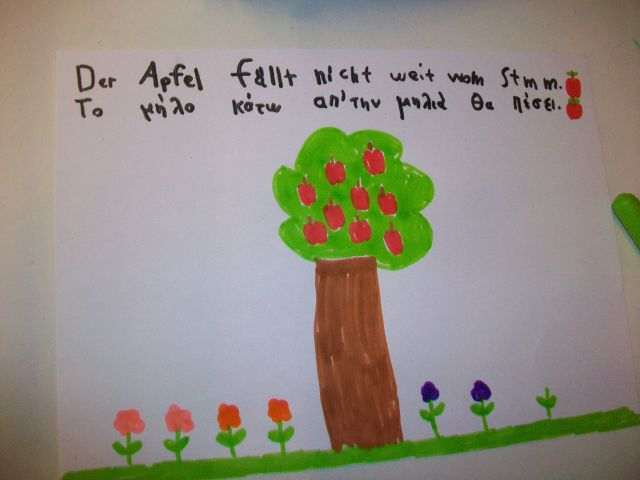 Der Apfel fällt nicht weit vom Stmm.
Το μήλο κάτω απ'την μηλιά θα πέσει.